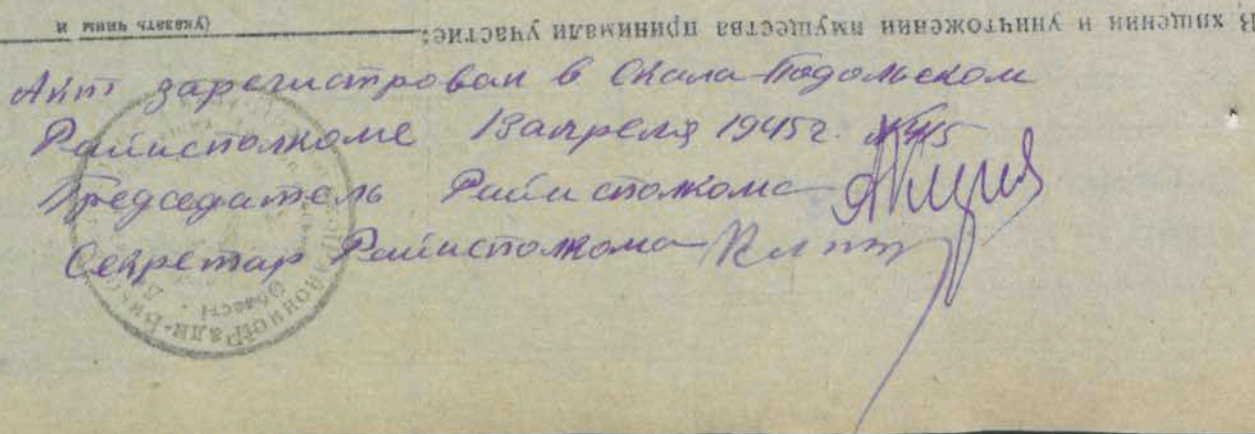 В хищении и уничтожении имущества принимали участие:
(указать чины и
Акт зарегистрирован в Скала-Подольском
Райисполкоме 13 апреля 1945г. №
Председатель Райисполкома
Секретар Райисполкома